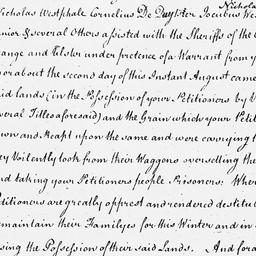 Nichola
Nicholas Westphale Cornelius De Duytster Jocobus Wes
unior & several Others assisted with the Sheriffs of the
ange and Ulster under pretence of a Warrant from y
or about the second day of this Instant August came
id lands (in the Possession of your Petitioners by V
veral Titles aforesaid) and the Grain which your Petit
own and Reapt upon the same and were carrying t
ey Voilently took from their Waggons overselling the
nd taking your Petitioners people Prisoners: Wher
etitioners are greatly opprest and rendered destitut
maintain their Familyes for this Winter and in
sing the Possession of their said Lands. And fora